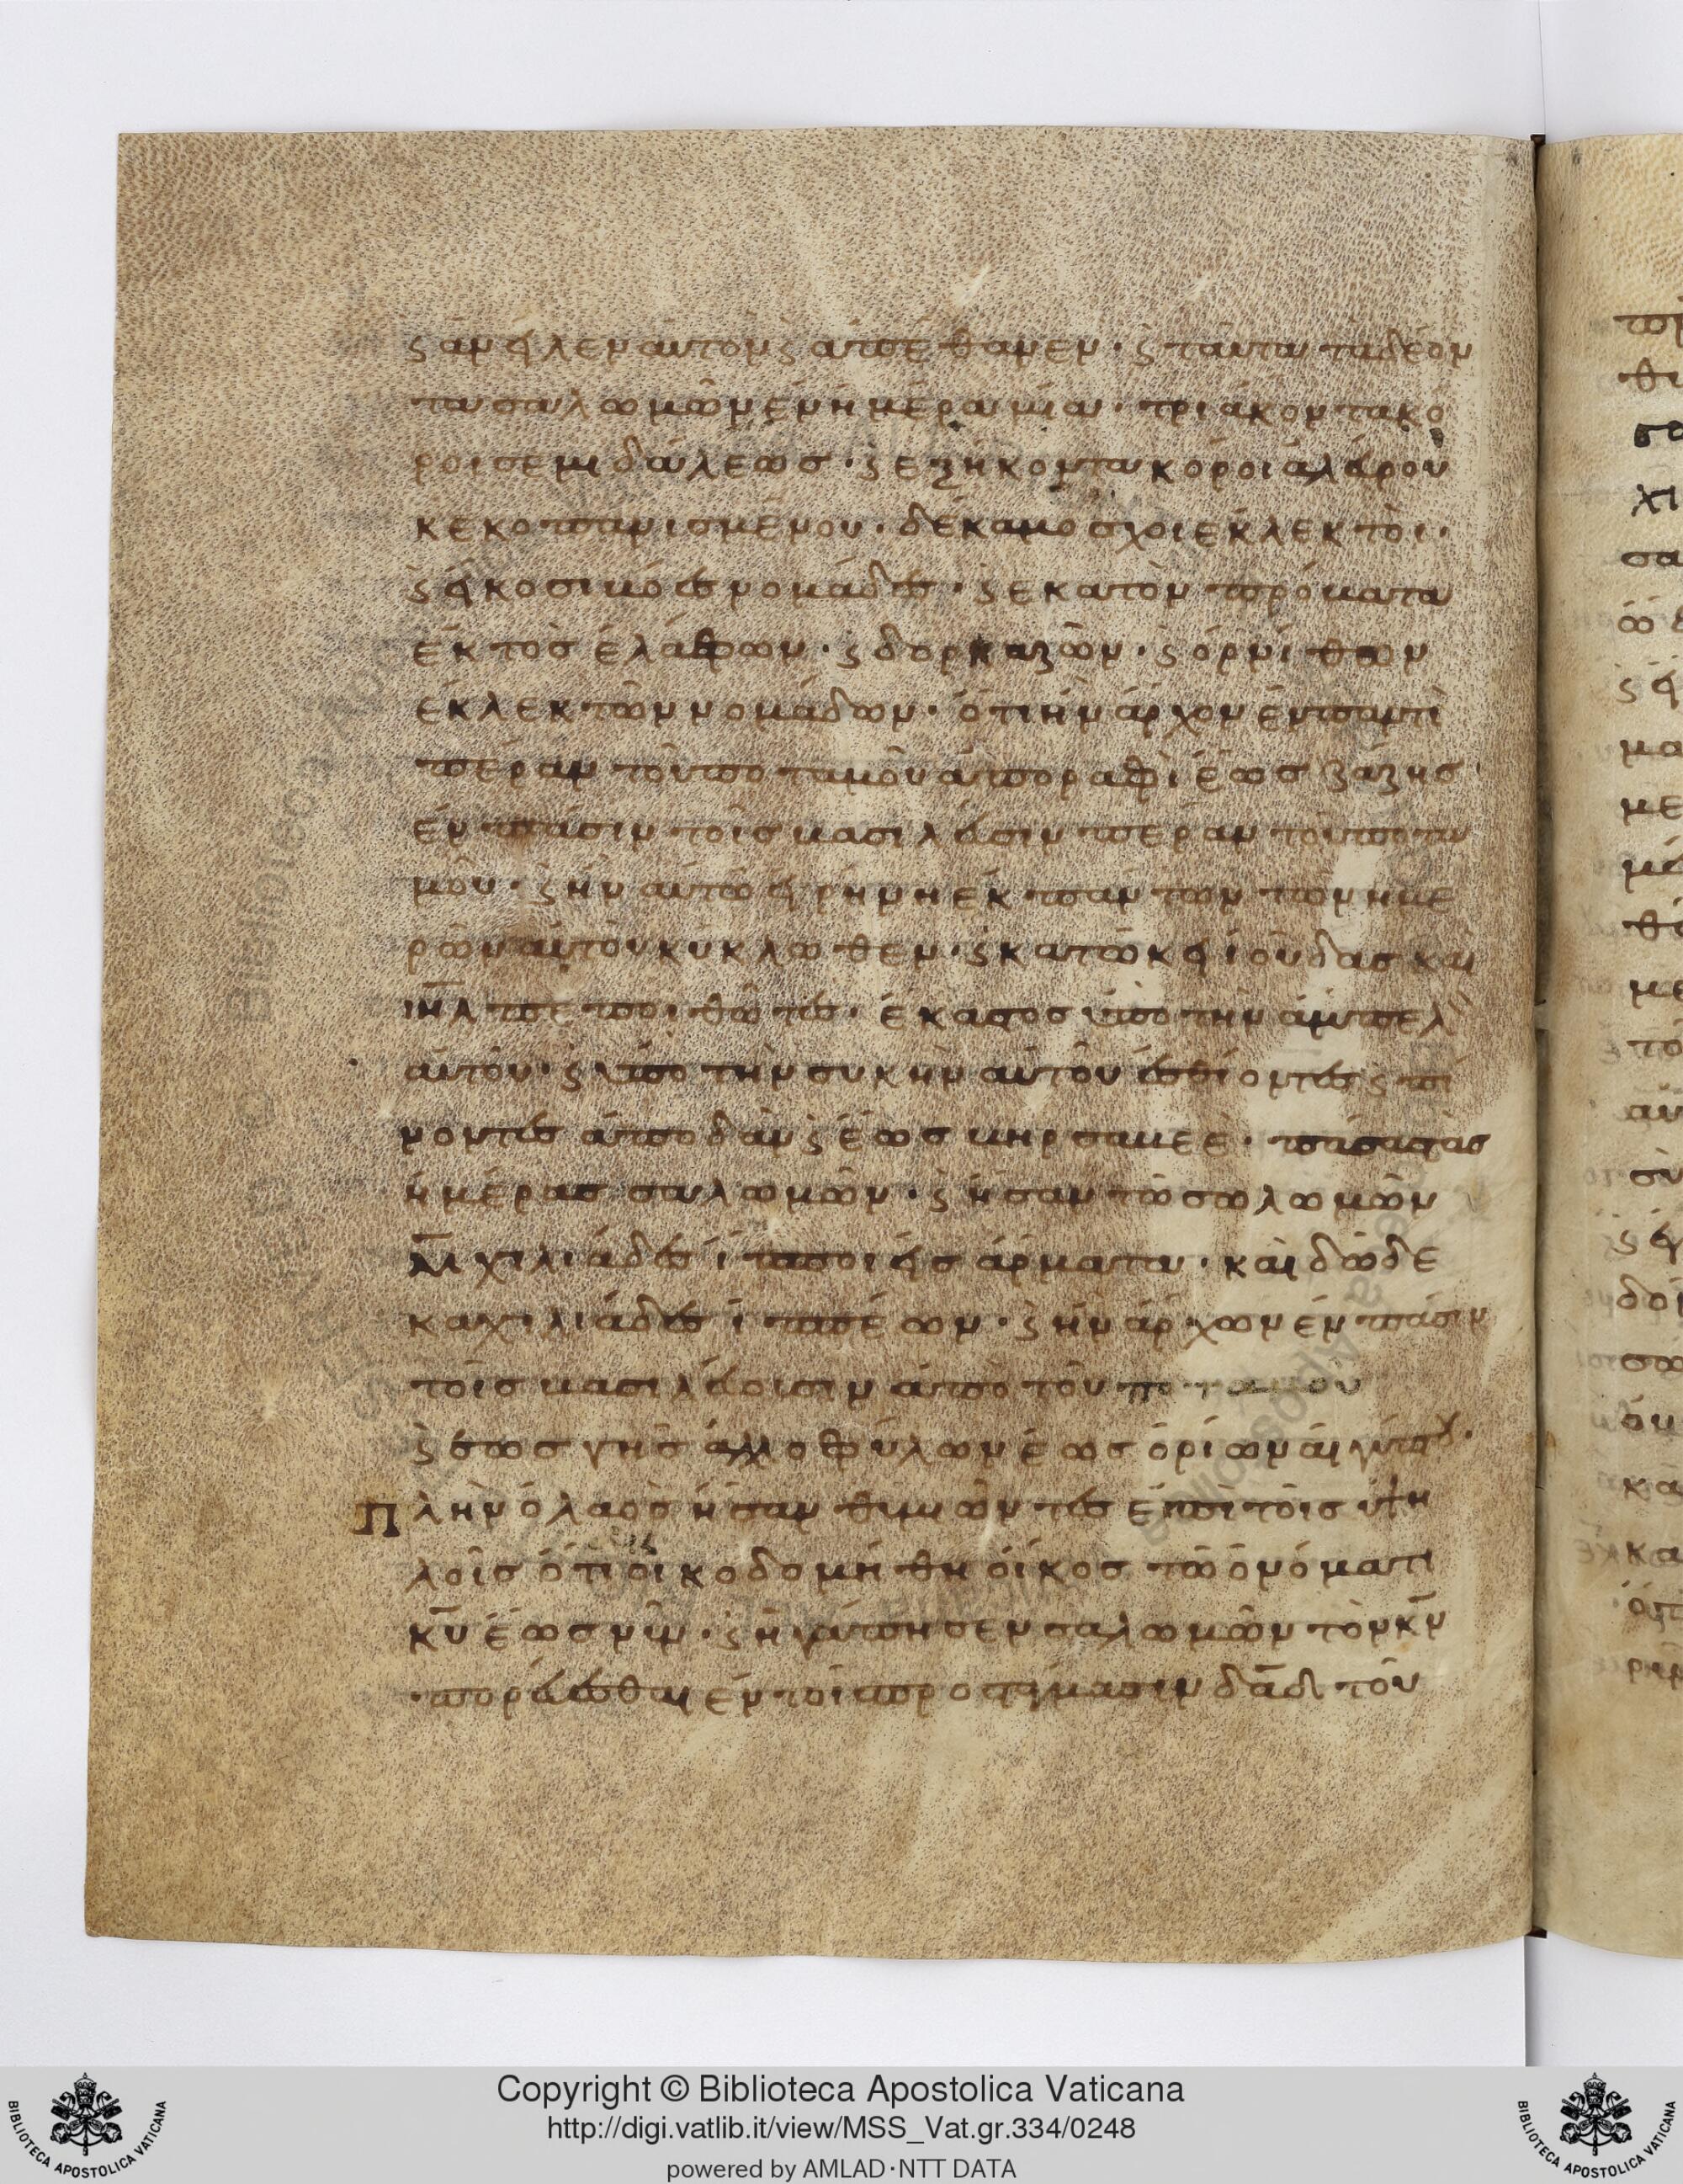 ϛ ἀνεῖλεν αὐτὸν ϛ ἀπέθανεν · ϛ ταῦτα τὰ δέον
τα σαλωμῶν ἐν ἡμέρα μία · τριάκοντα κο
ροι σεμιδάλεως · ϛ ἑξήκοντα κόροι ἀλεύρου
κεκοπανισμένου · δέκα μοσχοι ἐκλεκτοὶ ·
ϛ εἴκοσι βόες νομάδες · ϛ εκατὸν πρόβατα
ἐκτὸς ἐλάφων · ϛ δορκάζων · ϛ ὀρνίθων
ἐκλεκτῶν νομάδων · ὅτι ἦν ἄρχον ἐν παντὶ
πέραν τοῦ ποταμοῦ ἀπο ραφὶ ἕως γάζης ·
ἐν πᾶσιν τοῖς βασιλεῦσιν πέραν τοῦ ποτα
μοῦ · ϛ ἦν αὐτῶ εἰρήνη ἐκ πάντων τῶν με
ρῶν αὐτοῦ κύκλωθεν · ϛ κατώκει ἰούδας καὶ
ιηλ πεποιθῶτες · ἕκαστος ὑπὸ τὴν ἄμπελ
αὐτοῦ · ϛ ὑπὸ τὴν συκὴν αὐτοῦ ἐσθίοντες ϛ πί
νοντες ἀπο δὰν ϛ ἕως βηρσαβεέ · πάσας τὰς
ἡμέρας σαλωμῶν · ϛ ἦσαν τῶ σολομῶν
μ χιλιάδες ἵπποι εἰς ἅρματα · καὶ δώδε
κα χιλιάδες ἱππέων · ϛ ἦν ἄρχων ἐν πᾶσιν
τοῖς βασιλεύουσιν ἀπὸ τοῦ ποταμοῦ
ϛ ἕως γῆς ἀλλοφύλων ἕως ὁρίων αἰγύπτου ·
Πλὴν ὁ λαὸς ἦσαν θυμιῶντες ἐπὶ τοῖς ὑψη
λοῖς ὅτι οἰκοδομήθη οἶκος τῶ ὀνόματι
κυ ἕως νῦν · ϛ ἠγάπησεν σαλωμῶν τὸν κν
πορεύεσθαι ἐν τοῖ προστάγμασιν δαδ τοῦ
Copyright © Biblioteca Apostolica Vaticana
http://digi.vatlib.it/view/MSS_Vat.gr.334/0248
powered by AMLAD·NTT DATA
BIBLIOTECA APOSTOLICA VATICANA
BIBLIOTECA APOSTOLICA VATICANA